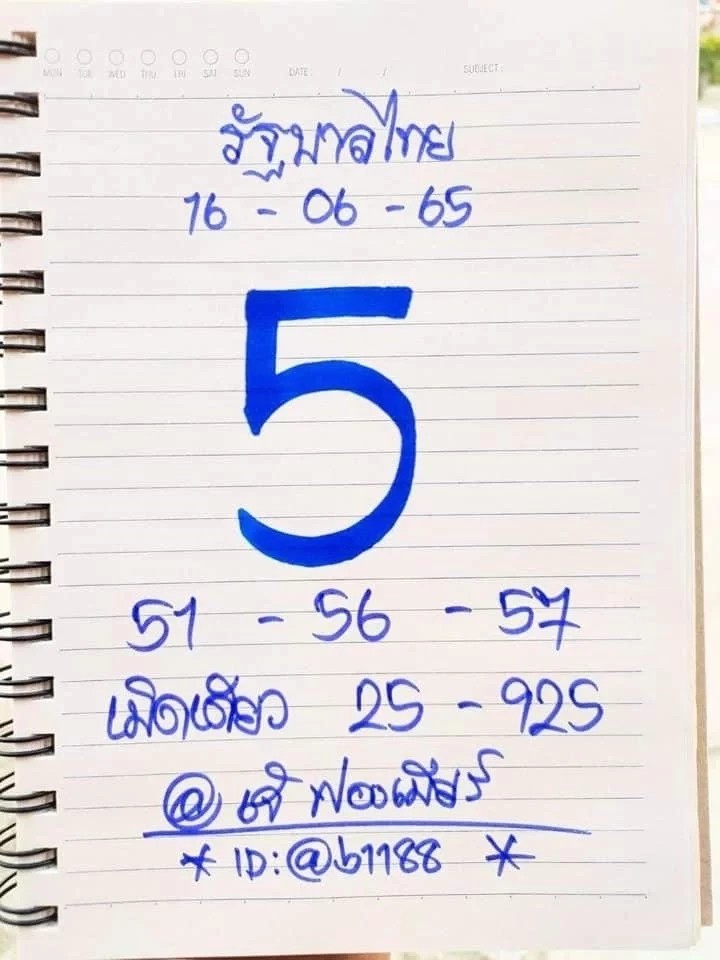 MON TUE WED THU FRI SAT SUN DATE: / / SUBJECT:
รัฐบาลไทย
16 - 06 - 65
5
51 - 56 - 57
เม็ดเดียว 25 - 925
@ เจ๊ฟองเบียร์
* ID:@b1188 *